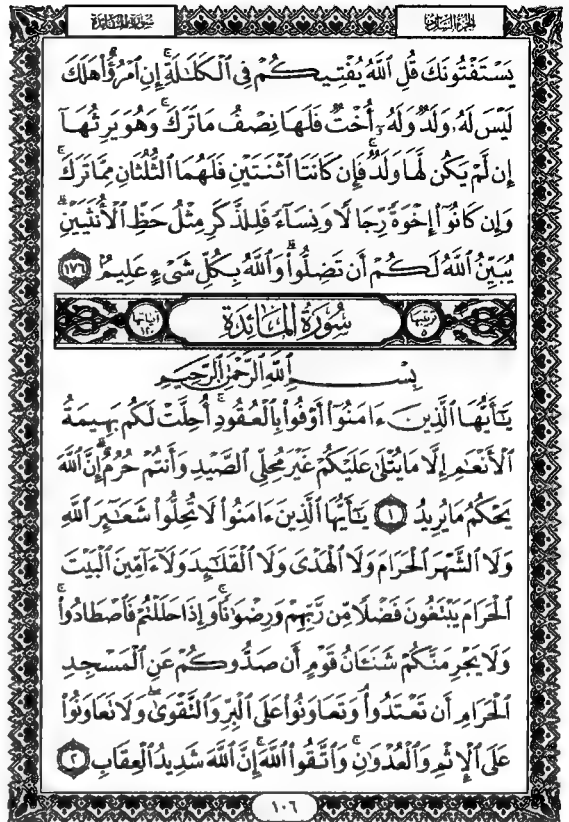 سُورَةُ المَائِدَةِ
الجُزءُ السَّادِسُ
يَسْتَفْتُونَكَ قُلِ ٱللَّهُ يُفْتِيكُمْ فِى ٱلْكَلَٰلَةِ ۚ إِنِ ٱمْرُؤٌا۟ هَلَكَ
لَيْسَ لَهُۥ وَلَدٌ وَلَهُۥٓ أُخْتٌ فَلَهَا نِصْفُ مَا تَرَكَ ۚ وَهُوَ يَرِثُهَآ
إِن لَّمْ يَكُن لَّهَا وَلَدٌ ۚ فَإِن كَانَتَا ٱثْنَتَيْنِ فَلَهُمَا ٱلثُّلُثَانِ مِمَّا تَرَكَ ۚ
وَإِن كَانُوٓا۟ إِخْوَةً رِّجَالًا وَنِسَآءً فَلِلذَّكَرِ مِثْلُ حَظِّ ٱلْأُنثَيَيْنِ ۗ
يُبَيِّنُ ٱللَّهُ لَكُمْ أَن تَضِلُّوا۟ ۗ وَٱللَّهُ بِكُلِّ شَىْءٍ عَلِيمٌۢ ١٧٦
ترتيبها ٥ سُورَةُ المَائِدَةِ آياتها ١٢٠
بِسْمِ ٱللَّهِ ٱلرَّحْمَٰنِ ٱلرَّحِيمِ
يَٰٓأَيُّهَا ٱلَّذِينَ ءَامَنُوٓا۟ أَوْفُوا۟ بِٱلْعُقُودِ ۚ أُحِلَّتْ لَكُم بَهِيمَةُ
ٱلْأَنْعَٰمِ إِلَّا مَا يُتْلَىٰ عَلَيْكُمْ غَيْرَ مُحِلِّى ٱلصَّيْدِ وَأَنتُمْ حُرُمٌ ۗ إِنَّ ٱللَّهَ
يَحْكُمُ مَا يُرِيدُ ١ يَٰٓأَيُّهَا ٱلَّذِينَ ءَامَنُوا۟ لَا تُحِلُّوا۟ شَعَٰٓئِرَ ٱللَّهِ
وَلَا ٱلشَّهْرَ ٱلْحَرَامَ وَلَا ٱلْهَدْىَ وَلَا ٱلْقَلَٰٓئِدَ وَلَآ ءَآمِّينَ ٱلْبَيْتَ
ٱلْحَرَامَ يَبْتَغُونَ فَضْلًا مِّن رَّبِّهِمْ وَرِضْوَٰنًا ۚ وَإِذَا حَلَلْتُمْ فَٱصْطَادُوا۟ ۚ
وَلَا يَجْرِمَنَّكُمْ شَنَـَٔانُ قَوْمٍ أَن صَدُّوكُمْ عَنِ ٱلْمَسْجِدِ
ٱلْحَرَامِ أَن تَعْتَدُوا۟ ۘ وَتَعَاوَنُوا۟ عَلَى ٱلْبِرِّ وَٱلتَّقْوَىٰ ۖ وَلَا تَعَاوَنُوا۟
عَلَى ٱلْإِثْمِ وَٱلْعُدْوَٰنِ ۚ وَٱتَّقُوا۟ ٱللَّهَ ۖ إِنَّ ٱللَّهَ شَدِيدُ ٱلْعِقَابِ ٢
١٠٦